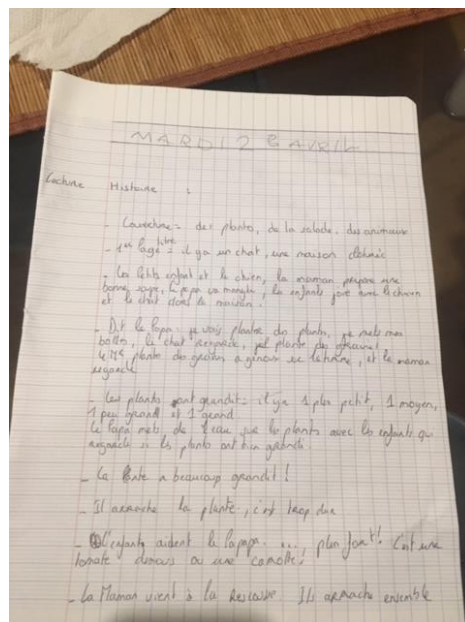 MARDI 28 AVRIL
Lecture Histoire :
- Couverture = des plantes, de la salade, des animaux
- 1er Page titre = il y a un chat, une maison
- Les petits enfant et le chien, la maman prépare une
bonne soupe, le papa ça mange, les enfants joue avec le chien
et le chat dans la maison.
- Dit le Papa : je vais planter des plants, je mets mes
bottes, le chat regarde, plante des graines!
plante des graines a genoux sur la terre, et la maman
regarde
- Les plants ont grandit = il y a 1 plus petit, 1 moyen,
1 peu grand et 1 grand.
Le Papa mets de l'eau sur les plants avec les enfants qui
regarde si les plants ont bien grandi.
- La plante a beaucoup grandit !
- Il arrache la plante, c'est trop dur
- L'enfants aident le papa ..., plus fort! C'est une
tomate ou une carotte!
- La Maman vient à la Rescousse. Ils arrache ensemble